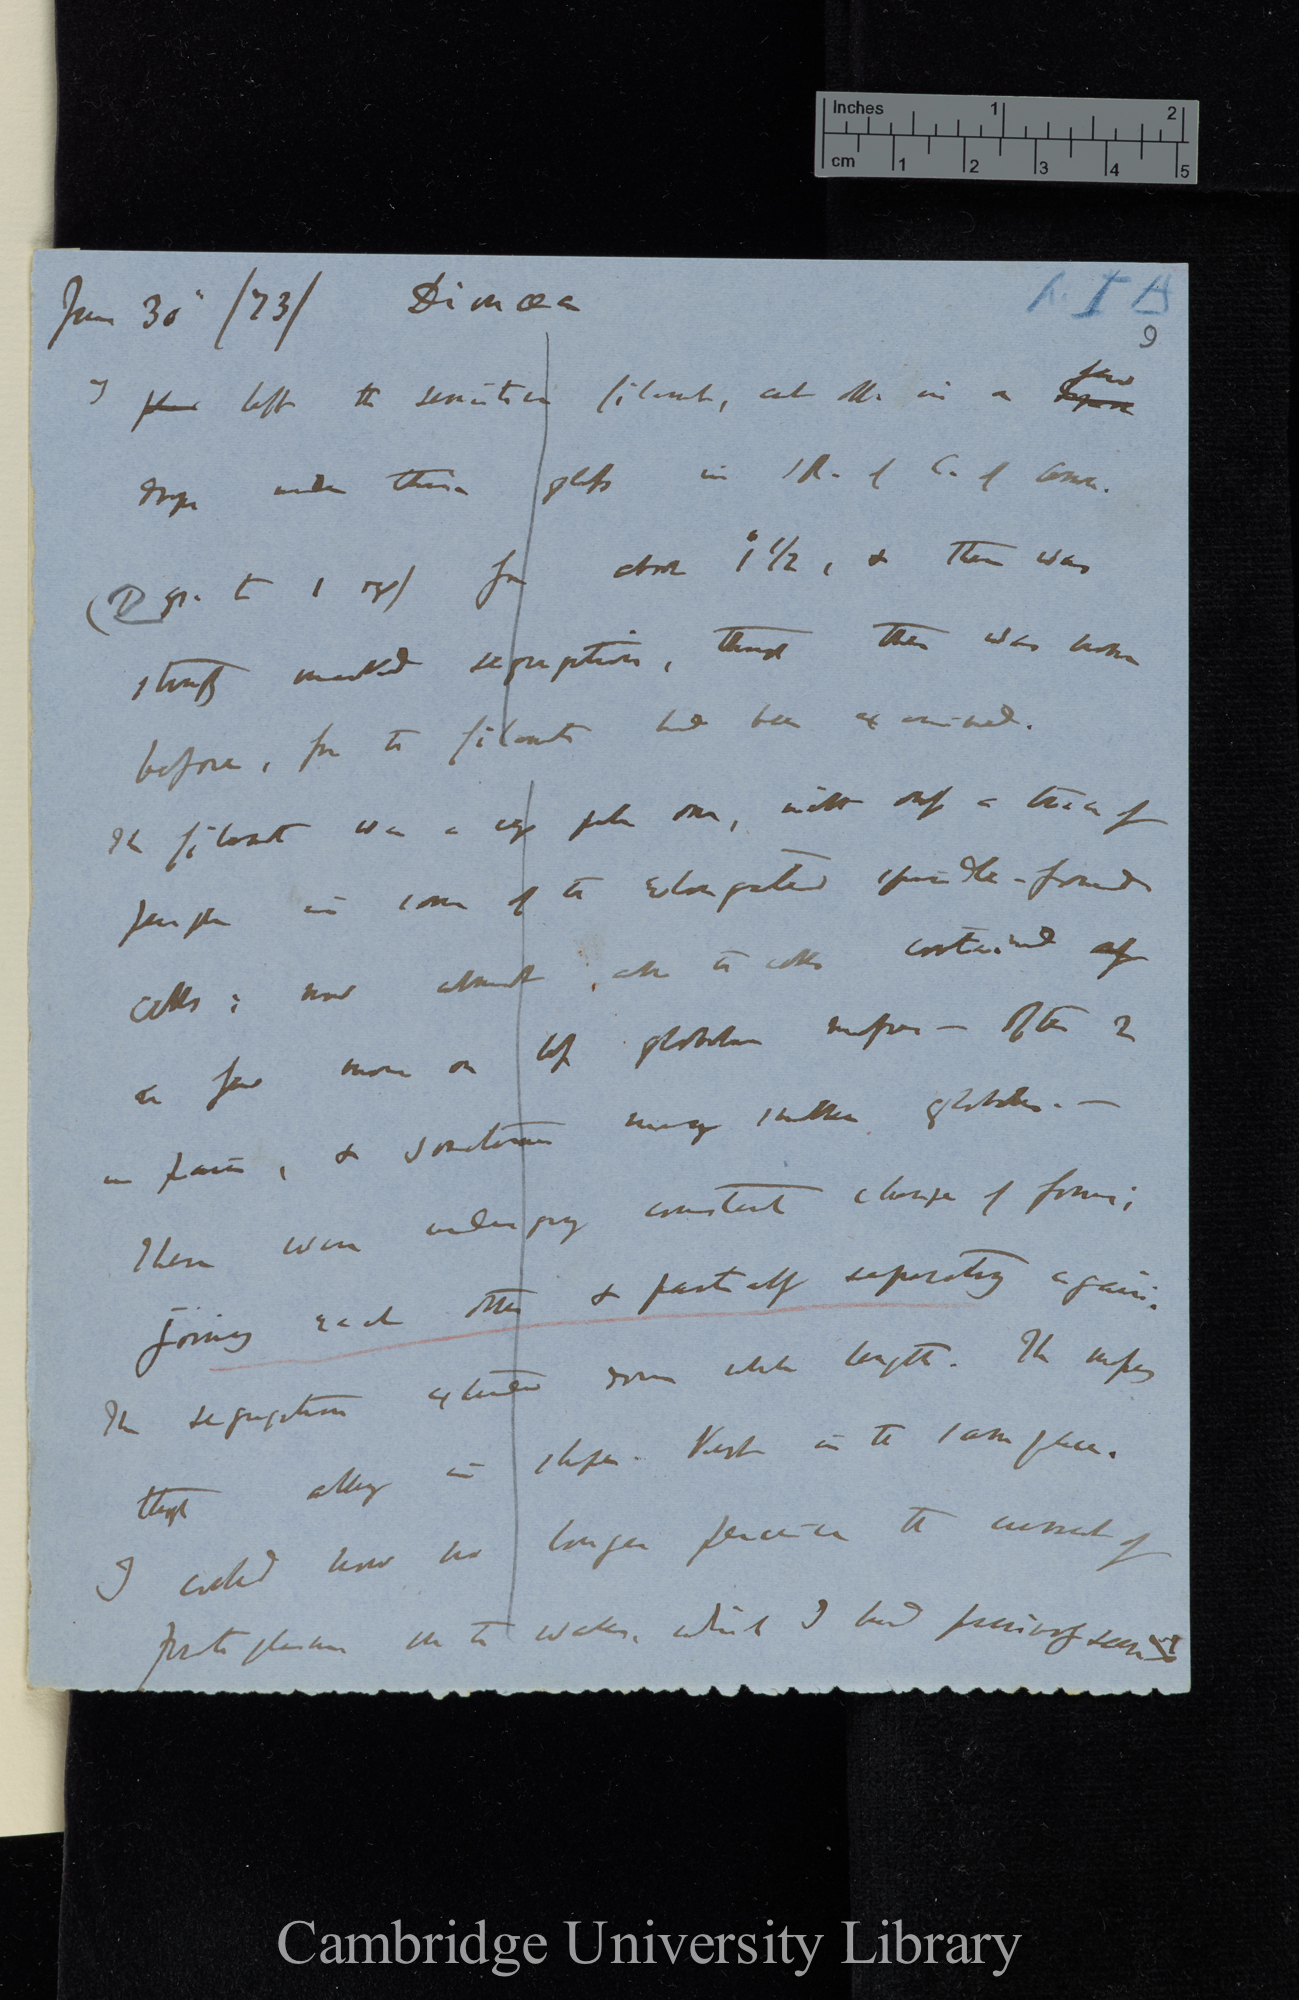 Inches 1 2
cm 1 2 3 4 5
June 30th /73/ Dionæa
9
I left the sensitive filament, cut off in a few
drops under thin glass in of C. of Ammon.
gr. to 1 oz) for about 1° 1/2, & there was
strongly marked segregation, though there was none
before, for the filaments had been examined.
The filament was a very pale one, with only a trace of
purple in some of the elongated spindle-formed
cells; now almost all the cells contained
a few more or less globular masses — often 2
or pair, & sometimes many smaller globules. —
These were undergoing constant change of form;
joining each other & partially separating again.
The segregation extended down whole length. The masses
though altering in shape kept in the same place.
I could now no longer perceive the current of
protoplasm on the walls, which I had previously seen
Cambridge University Library